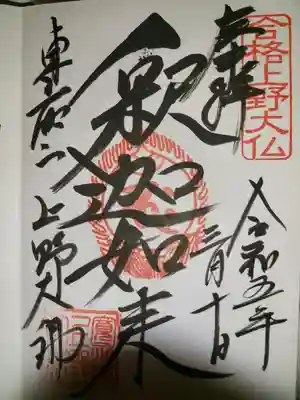 合格上野大仏
奉拝
令和五年
三月十日
釈迦如来
東京 上野大佛